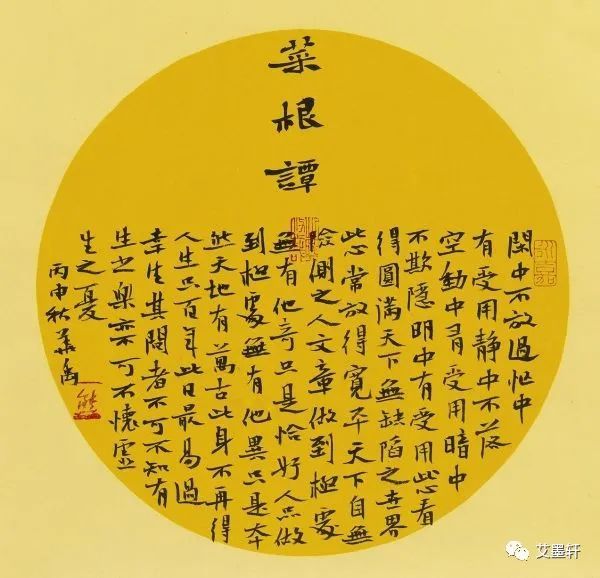 菜根譚
閑中不放過忙中
有受用静中不落
空動中有受用暗中
不欺隱明中有受用此心看
得圓満天下無缺陷之世界
此心常放得寬平天下自無
險側之人文章做到極處
無有他奇只是恰好人品做
到極處無有他異只是本
然天地有萬古此身不再得
人生只百年此日最易過
幸生其間者不可不知有
生之樂亦不可不懷虛
生之憂
丙申秋
艾墨轩